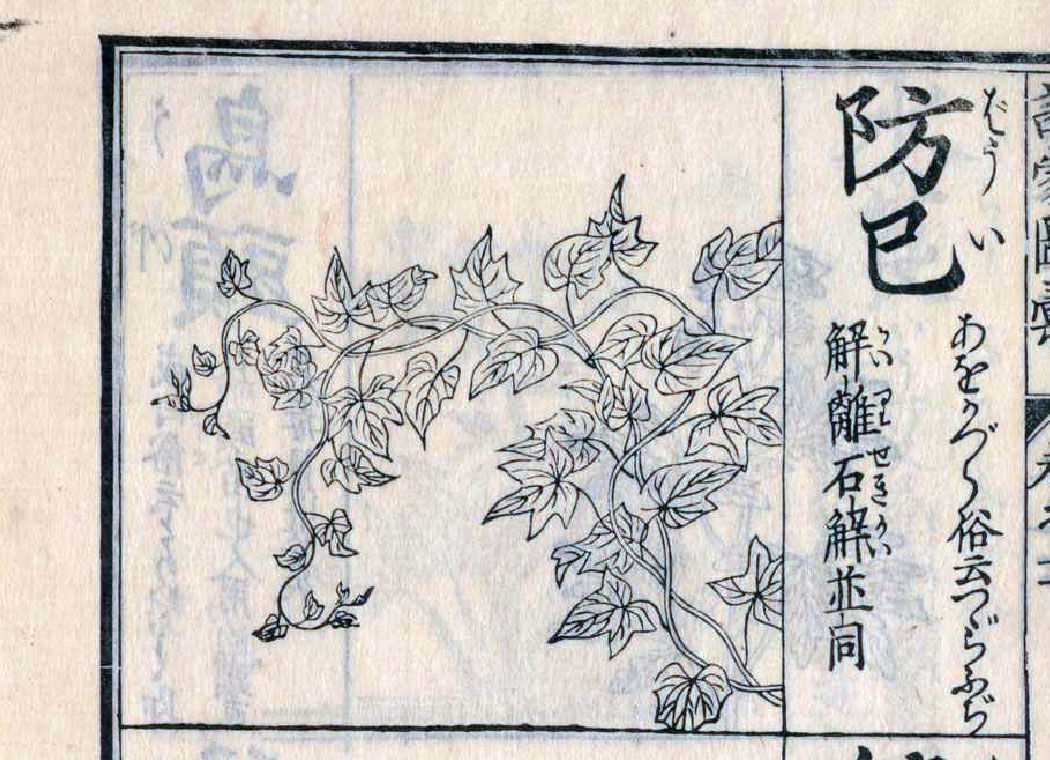 防已
ばうい
あをかづら俗云つゞらふぢ
解離石解並同
かいりせきかい